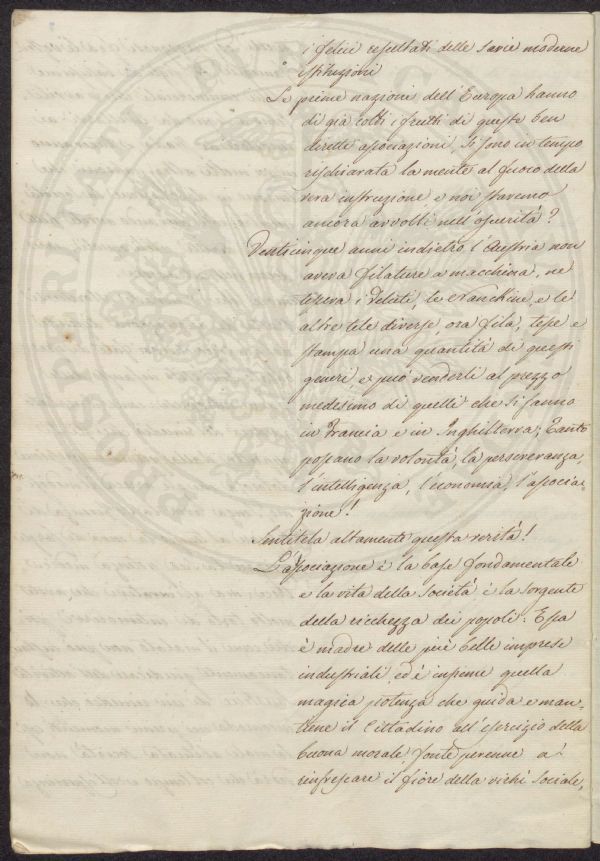 i felici resultati delle savie moderne
istituzioni
Le prime nazioni dell'Europa hanno
di già colti i frutti di queste ben
dirette associazioni, si sono in tempo
rischiarata la mente al fuoco della
vera instruzione, e noi staremo
ancora avvolti nell'oscurità?
Venticinque anni indietro l'Austria non
aveva filature a macchina, ne
tesseva i Veluti, le Nanchine, e le
altre tele diverse, ora fila, tesse e
stampa una quantità di questi
generi, e può venderli al prezzo
medesimo di quelli che si fanno
in Francia e in Inghilterra; Tanto
possano la volontà, la perseveranza,
l'intelligenza, l'economia, l'associa-
zione!
Sentitela altamente questa verità!
L'associazione è la base fondamentale
e la vita della Società è la sorgente
della ricchezza dei popoli. Essa
è madre delle più belle imprese
industriali, ed è insieme quella
magica potenza che guida e man-
tiene il Cittadino all'esercizio della
buona morale; fonte perenne a
rinfrescare il fiore della virtù sociale,